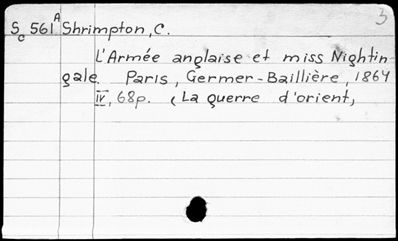 3
Sc 561 A Shrimpton, C.
L'Armée anglaise et miss Nightin
gale. Paris, Germer-Baillière, 1864
IV, 68p. (La guerre d'orient,